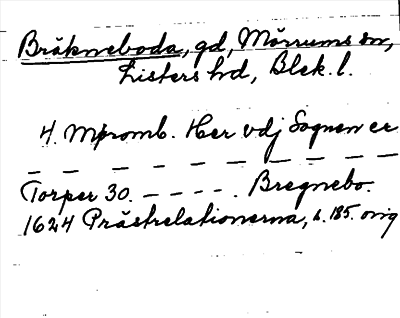 Bräkneboda, gd, Mörrums sn,
Listers hd, Blek. l.
4. Møromb. Her vdj Sognen er
— — — — — — — — —
Torper 30. – – – – . Bregnebo.
1624 Prästrelationerna, s. 185. orig